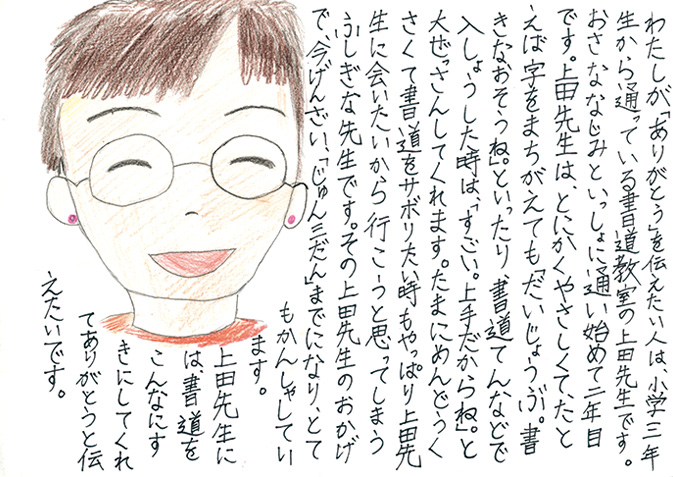 わたしが「ありがとう」を伝えたい人は、小学三年
生から通っている書道教室の上田先生です。
おさななじみといっしょに通い始めて二年目
です。上田先生は、とにかくやさしくて、たと
えば字をまちがえても「だいじょうぶ。書
きなおそうね。」といったり、書道てんなどで
入しょうした時は、「すごい。上手だからね。」と
大ぜっさんしてくれます。たまにめんどうく
さくて書道をサボリたい時もやっぱり上田先
生に会いたいから行こうと思ってしまう
ふしぎな先生です。その上田先生のおかげ
で、今げんざい、「じゅん三だん」までになり、とて
もかんしゃしてい
ます。
上田先生に
は、書道を
こんなにす
きにしてくれ
てありがとうと伝
えたいです。